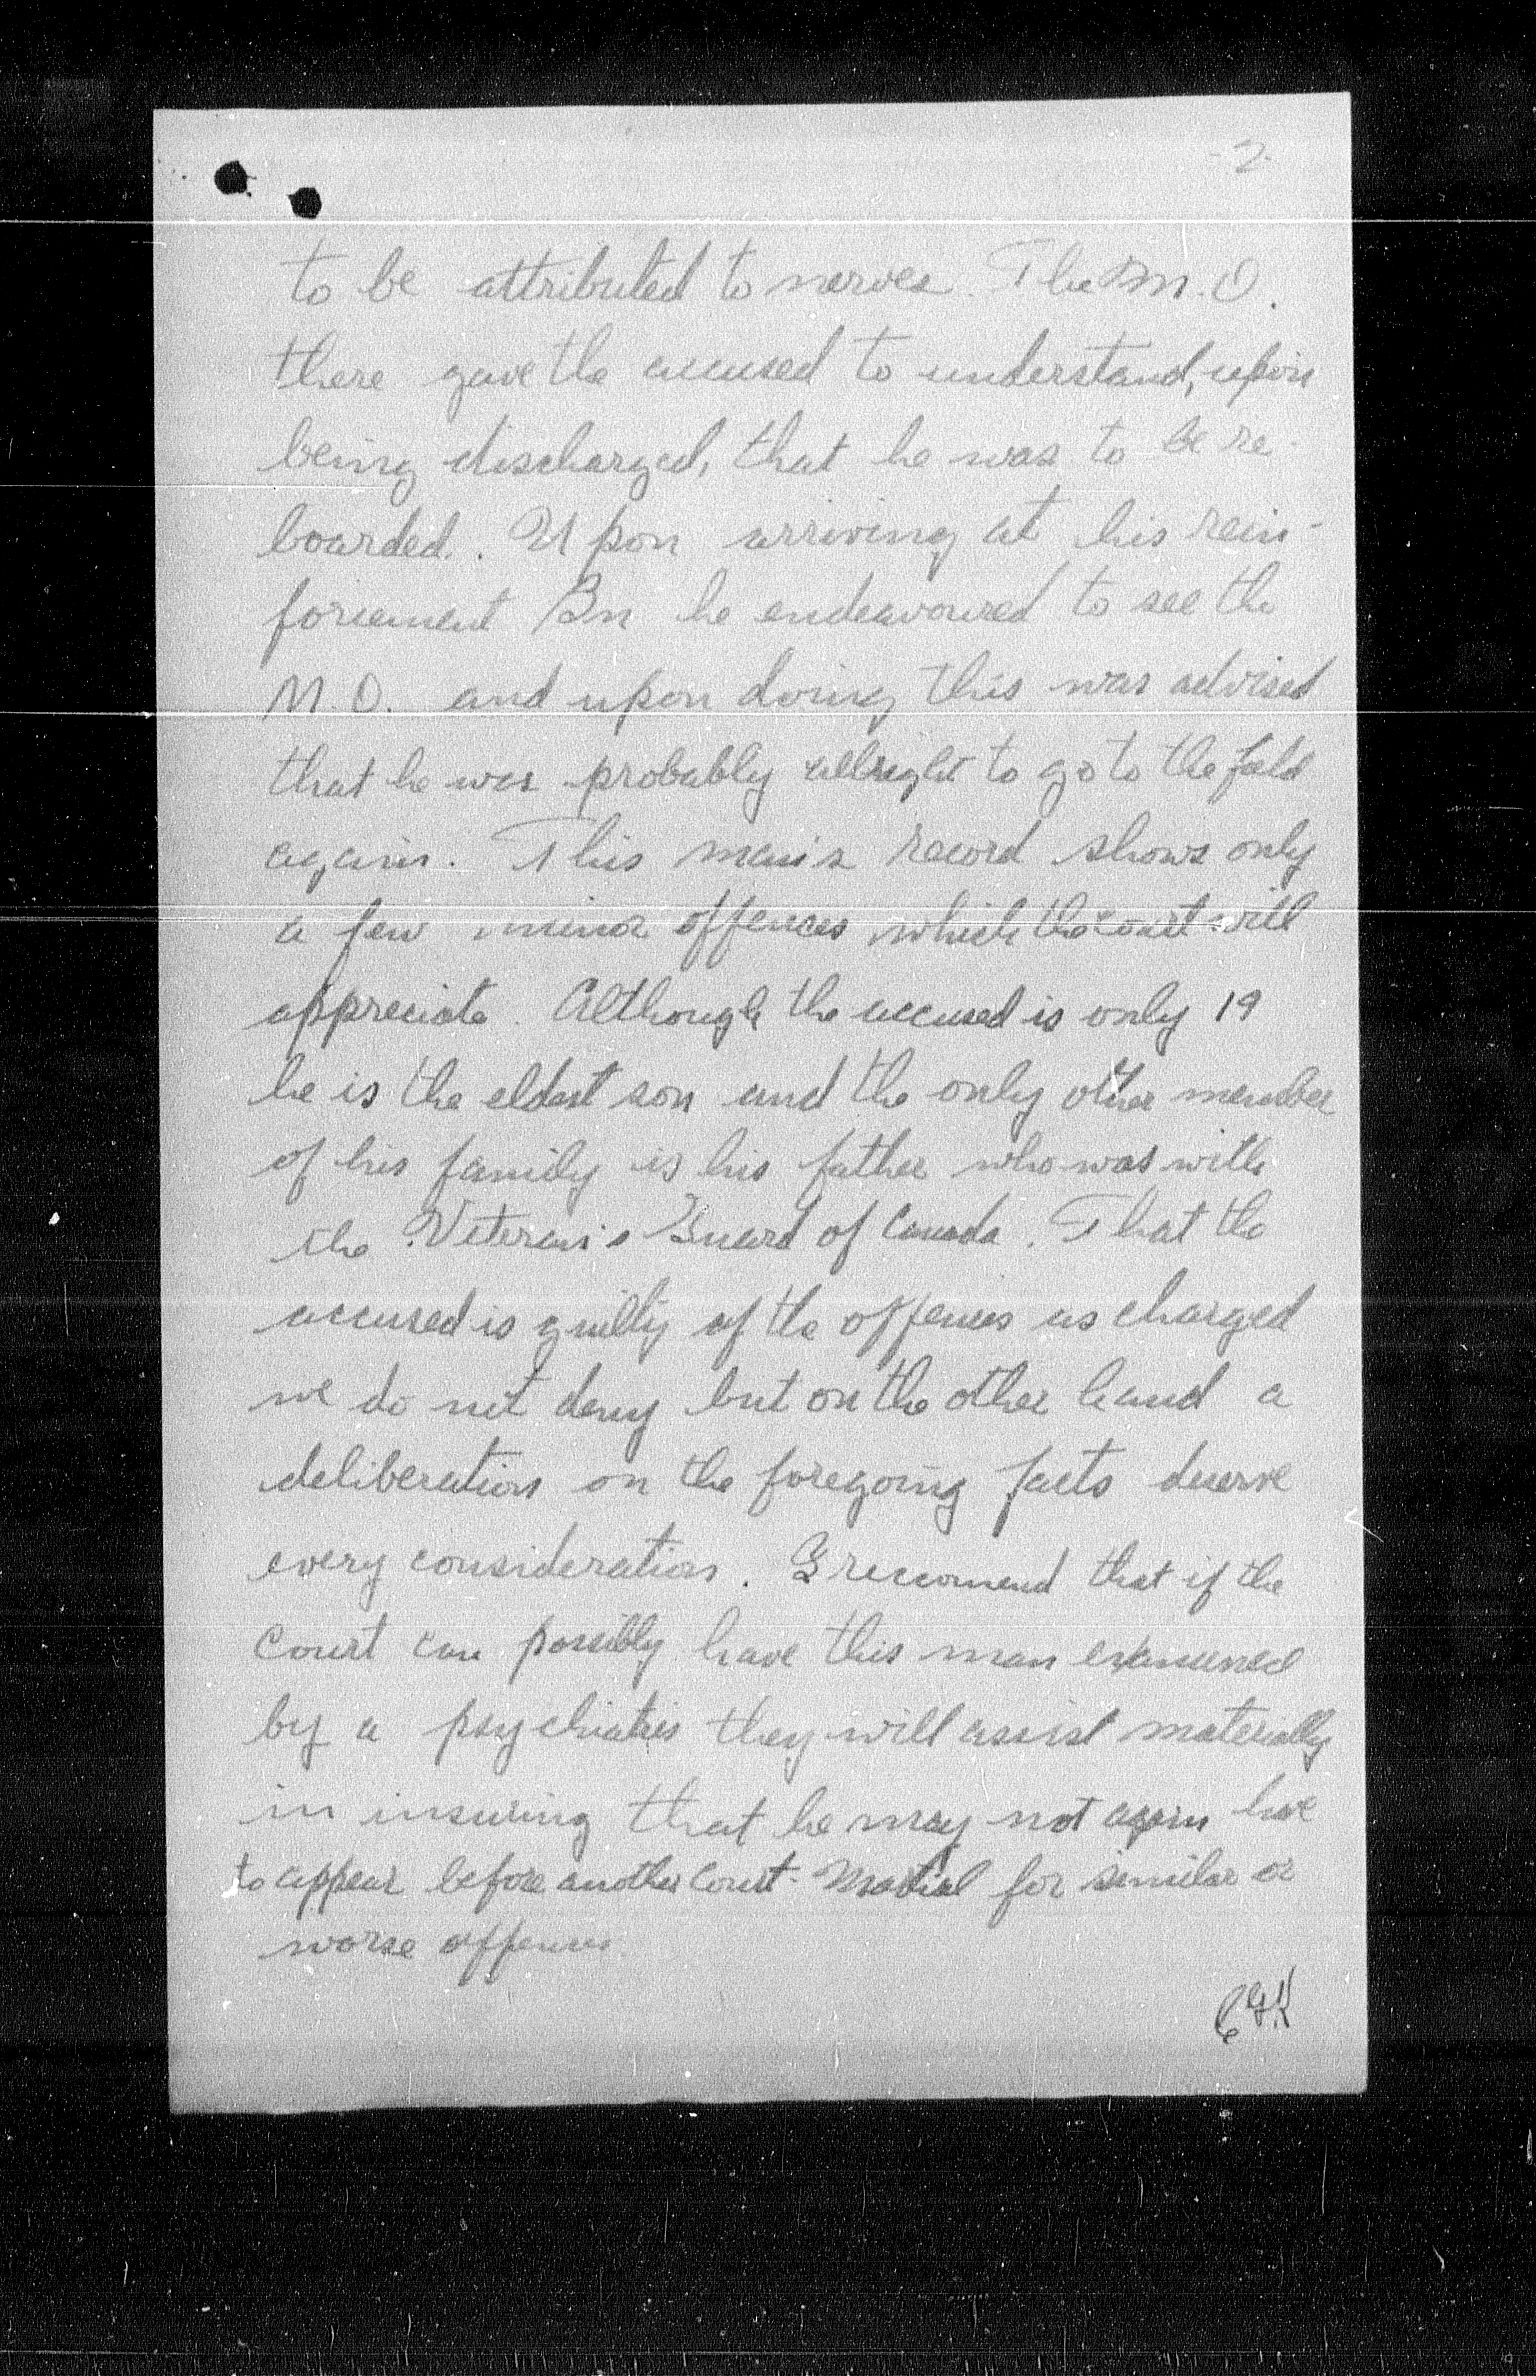 - 2 -
to be attributed to nerves. The M.O.
there gave the accused to understand, upon
being discharged, that he was to be re-
boarded. Upon arriving at his rein-
forcement Bn he endeavoured to see the
M.O. and upon doing this was advised
that he was probably allright to go to the field
again. This man's record shows only
a few minor offences which the court will
appreciate. Although the accused is only 19
he is the eldest son and the only other member
of his family is his father who was with
the Veteran's Guard of Canada. That the
accused is guilty of the offences as charged
we do not deny but on the other hand a
deliberation on the foregoing facts deserve
every consideration. I reccomend that if the
Court can possibly have this man examined
by a they will assist materially
in insuring that he may not again have
to appear before another Court-Martial for similar or
worse offences.